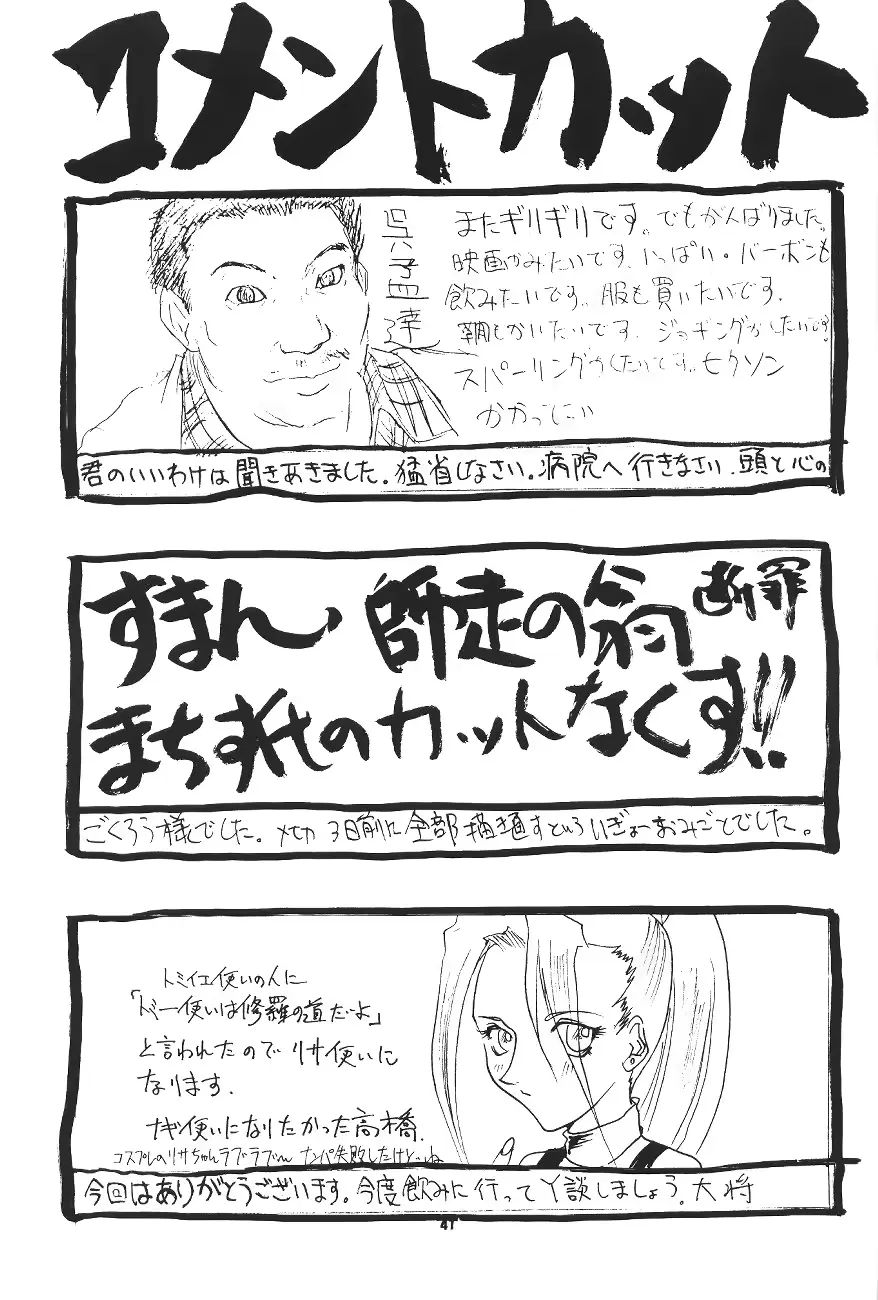 コメントカット
またギリギリです。でもがんばりました。
映画がみたいです、いっぱい。バーボンも
飲みたいです。服も買いたいです。
かいたいです、ジョギングがしたいです。
スパーリングがしたいです。ヒクソン
かかってこい
君のいいわけは聞きあきました。猛省しなさい。病院へ行きなさい、頭と心の
すまん、師走の翁 断罪
まちずいのカットなくす!!
ごくろう様でした。〆切3日前に全部描き直すといういぎょーおみごとでした。
トミイエ使いの人に
「ドベー使いは修羅の道だよ」
と言われたので リサ使いに
なります。
ナギ使いになりたかった高橋.
コスプレのリサちゃんラブラブ〜ん ナンパ失敗したけど…ね
今回はありがとうございます。今度飲みに行ってY談しましょう。大将
41